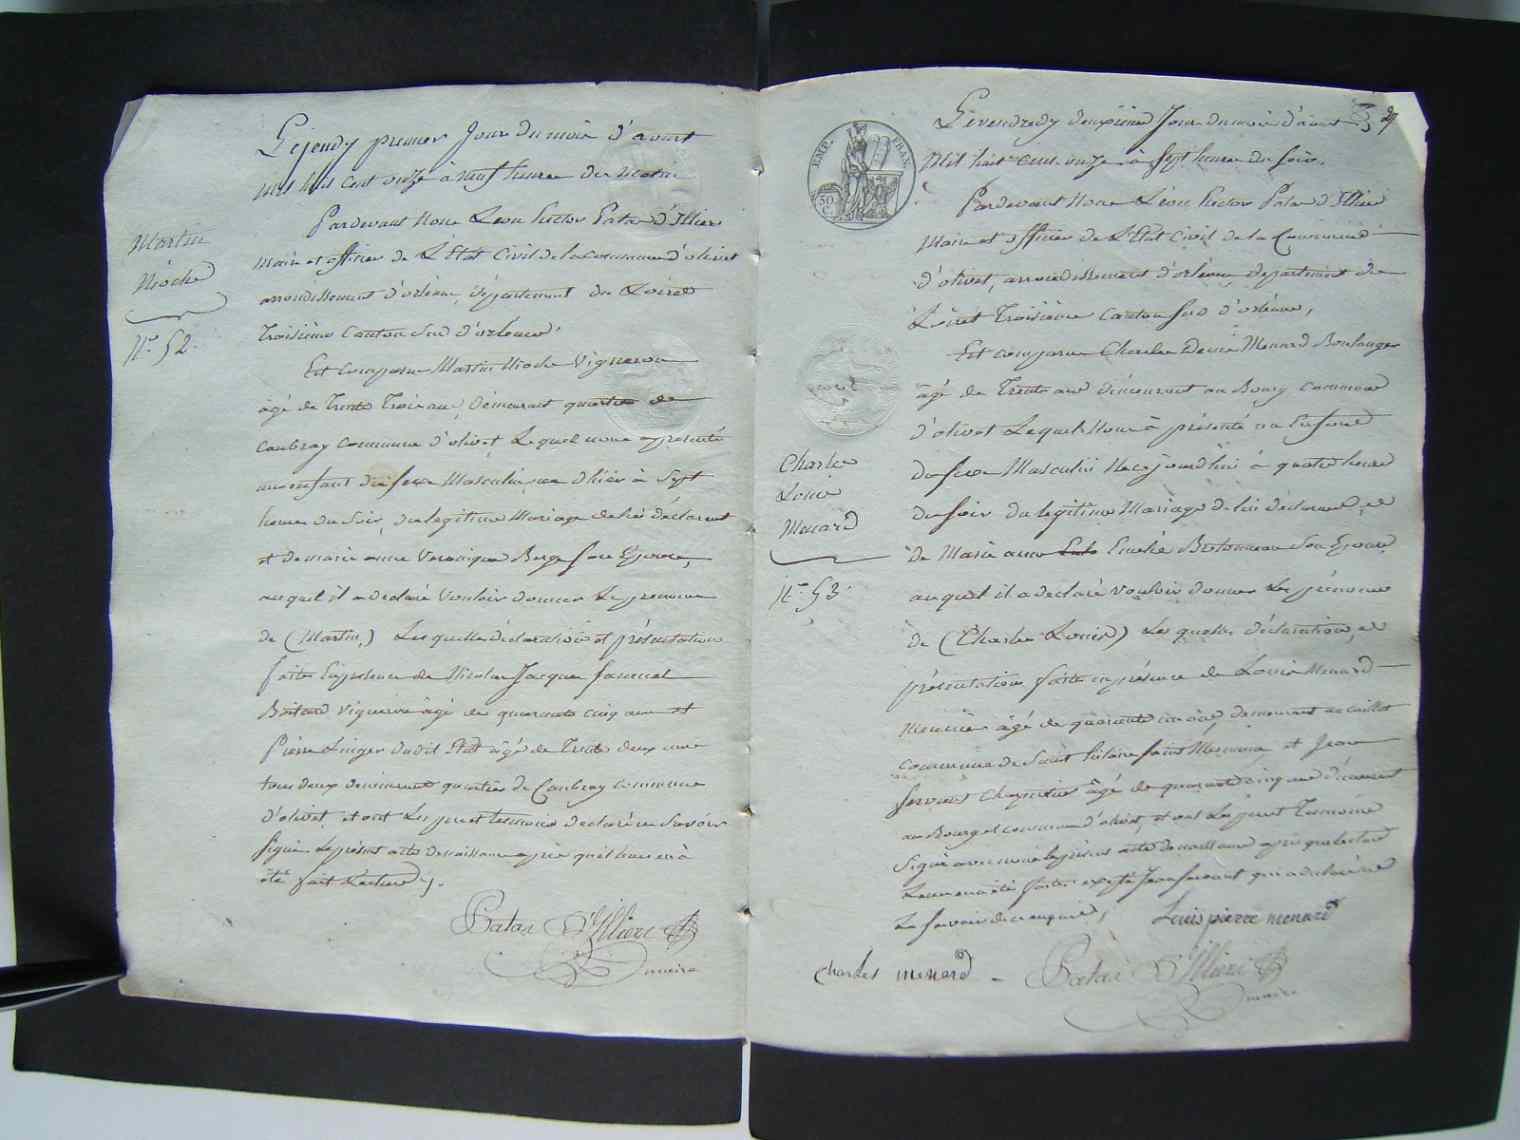 Le jeudy premier Jour du mois d'aoust
mil huit cent onze à neuf heures du matin
Pardevant nous Leon hector Patas d'Illiers
Maire et officier de L'Etat Civil de la Commune d'olivet
arrondissement d'orléans, département du Loiret
Troisième Canton Sud d'orléans.
Martin
Nioche
N.° 52.
Est Comparu Martin Nioche Vigneron
âgé de Trente Trois ans, Demeurant quartier de
Caubray Commune d'olivet, Lequel nous a présenté
un enfant du sexe Masculin, né d'hier à Sept
heures du Soir, du legitime Mariage de lui déclarant
et de marie anne Veronique Berge son Epouse,
auquel il a déclaré Vouloir donner Le prenom
de (Martin,) Les quelles déclaration et présentation
faites En présence de Nicolas Jacques
Vigneron âgé de quarante cinq ans et
Pierre Linger dudit Etat âgé de Trente deux ans
tous deux demeurant quartier de Caubray Commune
d'olivet, et ont Les pere et temoins déclaré ne Savoir
Signer Le présent acte de naissance après qu'il leur en à
été fait Lecture ).
Patas D'Illiers
maire
29
EMP. FRAN.
50 C.
Le vendredy deuxième Jour du mois d'aoust
Mil huit cent onze à Sept heures du Soir.
Pardevant Nous Léon hector Patas d'Illiers
Maire et officier de L'Etat Civil de la Commune
d'olivet, arrondissement d'orléans, département du
Loiret Troisième Canton Sud d'orléans,
Est comparu Charles Denis Menard Boulanger
âgé de Trente ans demeurant au Bourg commune
d'olivet Lequel Nous à présenté un Enfant
Charles
Louis
Menard
N.° 53.
du sexe Masculin Né cejourd'hui à quatre heures
du soir du legitime Mariage de lui déclarant, et
de Marie anne Emelie Bretonneau Son Epouse
auquel il a declaré vouloir donner Les prénoms
de (Charles Louis) Les quelles déclaration, et
présentation faites en présence de Louis Menard
Meunier âgé de quarante un ans demeurant au
commune de Saint hilaire Saint Mesmin et Jean
Servant Charpentier âgé de quarante cinq ans demeurant
au Bourg et commune d'olivet, et ont Les pere et Temoins
Signé avec nous le présent acte de naissance après que lecture
Leur en a été faite excepté Jean Servant qui a déclaré ne
Le savoir de ce enquis, Louis pierre menard
Charles menard - Patas D'Illiers
maire